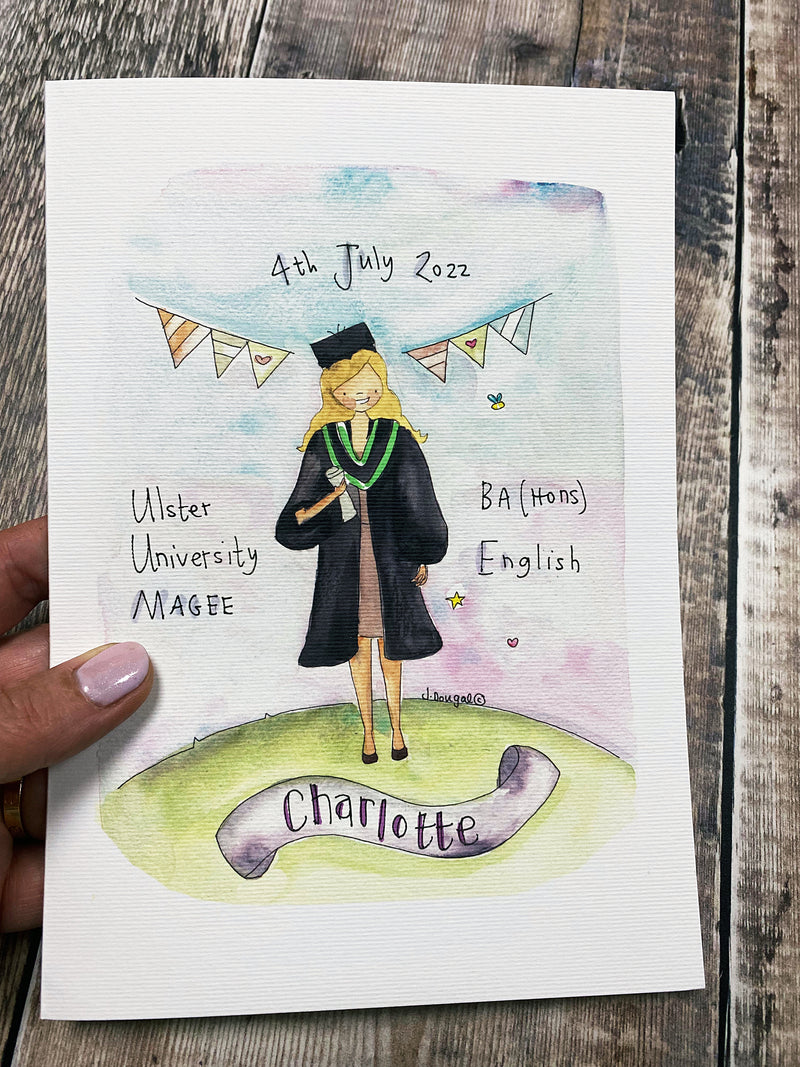 4th July 2022
Ulster
University
MAGEE
BA (Hons)
English
J.Dougal©
Charlotte